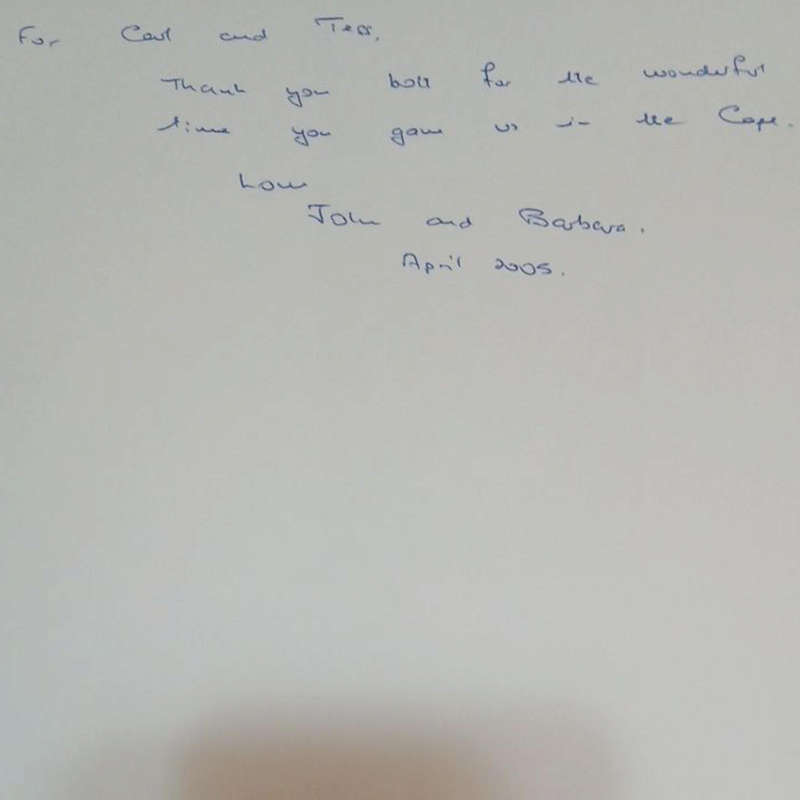 For Carl and Tess,
Thank you both for the wonderful
time you gave us in the Cape.
Love
John and Barbara.
April 2005.